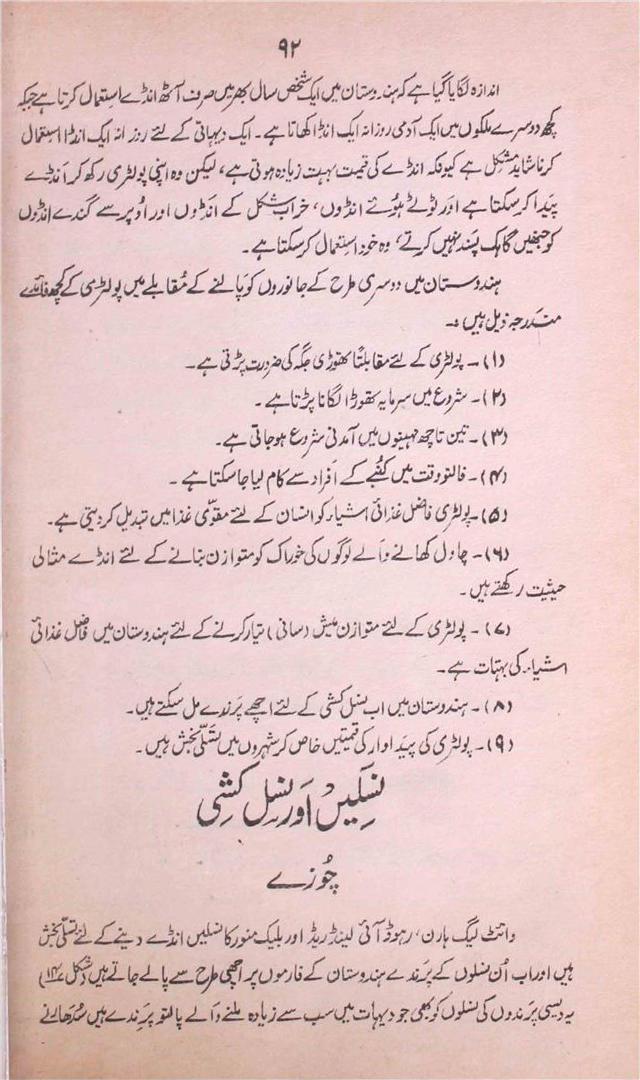 ۹۲
اندازہ لگایا گیا ہے کہ ہندوستان میں ایک شخص سال بھر میں صرف آٹھ انڈے استعمال کرتا ہے جبکہ
کچھ دوسرے ملکوں میں ایک آدمی روزانہ ایک انڈا کھاتا ہے۔ ایک دیہاتی کے لئے روزانہ ایک انڈا استعمال
کرنا شاید مشکل ہے کیونکہ انڈے کی قیمت بہت زیادہ ہوتی ہے، لیکن وہ اپنی پولٹری رکھ کر انڈے
پیدا کر سکتا ہے اور ٹوٹے ہوئے انڈوں، خراب شکل کے انڈوں اور اوپر سے گندے انڈوں
کو جنھیں گاہک پسند نہیں کرتے، وہ خود استعمال کر سکتا ہے۔
ہندوستان میں دوسری طرح کے جانوروں کو پالنے کے مقابلے میں پولٹری کے کچھ فائدے
مندرجہ ذیل ہیں :۔
(۱)۔ پولٹری کے لئے مقابلتاً تھوڑی جگہ کی ضرورت پڑتی ہے۔
(۲)۔ شروع میں سرمایہ تھوڑا لگانا پڑتا ہے۔
(۳)۔ تین تا چھ مہینوں میں آمدنی شروع ہو جاتی ہے۔
(۴)۔ فالتو وقت میں کنبے کے افراد سے کام لیا جا سکتا ہے۔
(۵)۔ پولٹری فاضل غذائی اشیاء کو انسان کے لئے مقوّی غذا میں تبدیل کر دیتی ہے۔
(۶)۔ چاول کھانے والے لوگوں کی خوراک کو متوازن بنانے کے لئے انڈے مثالی
حیثیت رکھتے ہیں۔
(۷)۔ پولٹری کے لئے متوازن میش (سانی) تیار کرنے کے لئے ہندوستان میں فاضل غذائی
اشیاء کی بہتات ہے۔
(۸)۔ ہندوستان میں اب نسل کشی کے لئے اچھے پرندے مل سکتے ہیں۔
(۹)۔ پولٹری کی پیداوار کی قیمتیں خاص کر شہروں میں تسلّی بخش ہیں۔
نسلیں اور نسل کشی
چوزے
وائٹ لیگ ہارن، رہوڈ آئی لینڈ ریڈ اور بلیک منورکا نسلیں انڈے دینے کے لئے تسلّی بخش
ہیں اور اب اُن نسلوں کے پرندے ہندوستان کے فارموں پر اچھی طرح سے پالے جاتے ہیں (شکل ۱۴۷)
یہ دیسی پرندوں کی نسلوں کو بھی جو دیہات میں سب سے زیادہ ملنے والے پالتو پرندے ہیں سُدھارنے